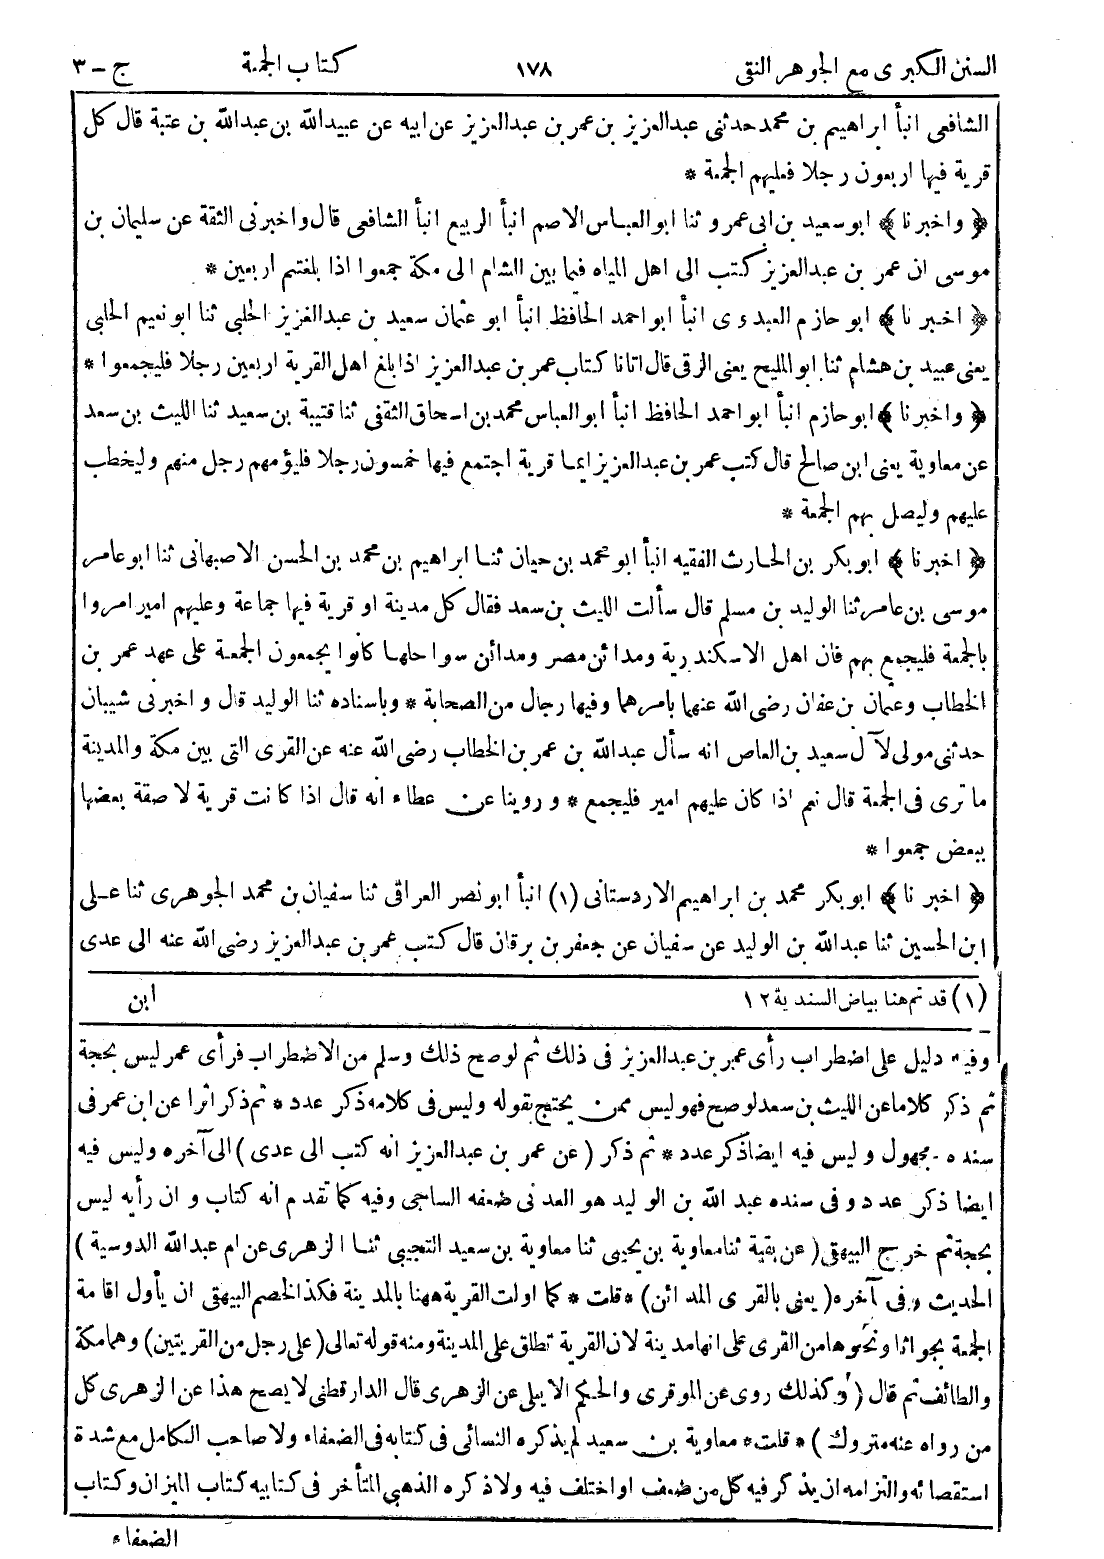 السنن الكبرى مع الجوهر النقى ١٧٨ كتاب الجمعة ج - ٣
الشافعى انبأ ابراهيم بن محمد حدثنى عبدالعزيز بن عمر بن عبدالعزيز عن ابيه عن عبيدالله بن عبدالله بن عتبة قال كل
قرية فيها اربعون رجلا فعليهم الجمعة *
﴿ واخبرنا ﴾ ابو سعيد بن ابى عمرو ثنا ابوالعباس الاصم انبأ الربيع انبأ الشافعى قال واخبرنى الثقة عن سليمان بن
موسى ان عمر بن عبدالعزيز كتب الى اهل المياه فيما بين الشام الى مكة جمعوا اذا بلغتم اربعين *
﴿ اخبرنا ﴾ ابو حازم العبدوى انبأ ابواحمد الحافظ انبأ ابو عثمان سعيد بن عبدالعزيز الحلبى ثنا ابونعيم الحلبى
يعنى عبيد بن هشام ثنا ابوالمليح يعنى الرقى قال اتانا كتاب عمر بن عبدالعزيز اذا بلغ اهل القرية اربعين رجلا فليجمعوا *
﴿ واخبرنا ﴾ ابوحازم انبأ ابواحمد الحافظ انبأ ابوالعباس محمد بن اسحاق الثقفى ثنا قتيبة بن سعيد ثنا الليث بن سعد
عن معاوية يعنى ابن صالح قال كتب عمر بن عبدالعزيز ايما قرية اجتمع فيها خمسون رجلا فليؤمهم رجل منهم وليخطب
عليهم وليصل بهم الجمعة *
﴿ اخبرنا ﴾ ابوبكر بن الحارث الفقيه انبأ ابو محمد بن حيان ثنا ابراهيم بن محمد بن الحسن الاصبهانى ثنا ابوعامر
موسى بن عامر ثنا الوليد بن مسلم قال سألت الليث بن سعد فقال كل مدينة او قرية فيها جماعة وعليهم امير امروا
بالجمعة فليجمع بهم فان اهل الاسكندرية ومدائن مصر ومدائن سواحلها كانوا يجمعون الجمعة على عهد عمر بن
الخطاب وعثمان بن عفان رضى الله عنهما بامرهما وفيها رجال من الصحابة * وباسناده ثنا الوليد قال واخبرنى شيبان
حدثنى مولى لآل سعيد بن العاص انه سأل عبدالله بن عمر بن الخطاب رضى الله عنه عن القرى التى بين مكة والمدينة
ما ترى فى الجمعة قال نعم اذا كان عليهم امير فليجمع * و روينا عن عطاء انه قال اذا كانت قرية لاصقة بعضها
ببعض جمعوا *
﴿ اخبرنا ﴾ ابوبكر محمد بن ابراهيم الاردستانى (١) انبأ ابونصر العراقى ثنا سفيان بن محمد الجوهرى ثنا على
ابن الحسين ثنا عبدالله بن الوليد عن سفيان عن جعفر بن برقان قال كتب عمر بن عبدالعزيز رضى الله عنه الى عدى
(١) قد تم هنا بياض السندية ١٢ ابن
وفيه دليل على اضطراب رأى عمر بن عبدالعزيز فى ذلك ثم لو صح ذلك وسلم من الاضطراب فرأى عمر ليس بحجة
ثم ذكر كلاما عن الليث بن سعد لو صح فهو ليس ممن يحتج بقوله وليس فى كلامه ذكر عدد * ثم ذكر اثرا عن ابن عمر فى
سنده مجهول وليس فيه ايضا ذكر عدد * ثم ذكر ( عن عمر بن عبدالعزيز انه كتب الى عدى ) الى آخره وليس فيه
ايضا ذكر عدد وفى سنده عبد الله بن الوليد هو العدنى ضعفه الساجى وفيه كما تقدم انه كتاب وان رأيه ليس
بحجة ثم خرج البيهقى ( عن بقية ثنا معاوية بن يحيى ثنا معاوية بن سعيد التجيبى ثنا الزهرى عن ام عبدالله الدوسية )
الحديث وفى آخره ( يعنى بالقرى المدائن ) * قلت * كما اولت القرية ههنا بالمدينة فكذا لخصم البيهقى ان يأول اقامة
الجمعة بجواثا ونحوها من القرى على انها مدينة لان القرية تطلق على المدينة ومنه قوله تعالى ( على رجل من القريتين ) وهما مكة
والطائف ثم قال ( وكذلك روى عن الموقرى والحكم الايلى عن الزهرى قال الدارقطنى لا يصح هذا عن الزهرى كل
من رواه عنه متروك ) * قلت * معاوية بن سعيد لم يذكره النسائى فى كتابه فى الضعفاء ولا صاحب الكامل مع شدة
استقصائه والتزامه ان يذكر فيه كل من ضعف او اختلف فيه ولا ذكره الذهبى المتأخر فى كتابيه كتاب الميزان وكتاب
الضعفاء